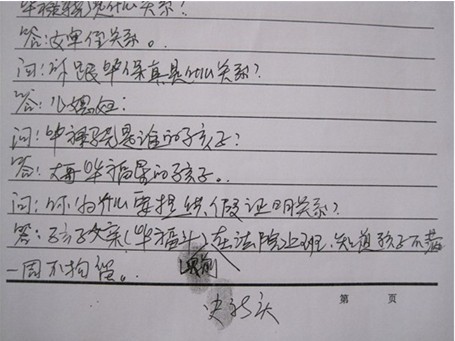 毕禄骁是什么关系?
答:父母侄关系。
问:你跟毕保真是什么关系?
答:儿媳妇:
问:毕禄骁是谁的孩子?
答:大哥毕福军的孩子。
问:你为什么要提供假证明关系?
答:孩子父亲(毕福斗)在法院上班,知道孩子不满
以前
一周不拘留。
史秋头
第 页